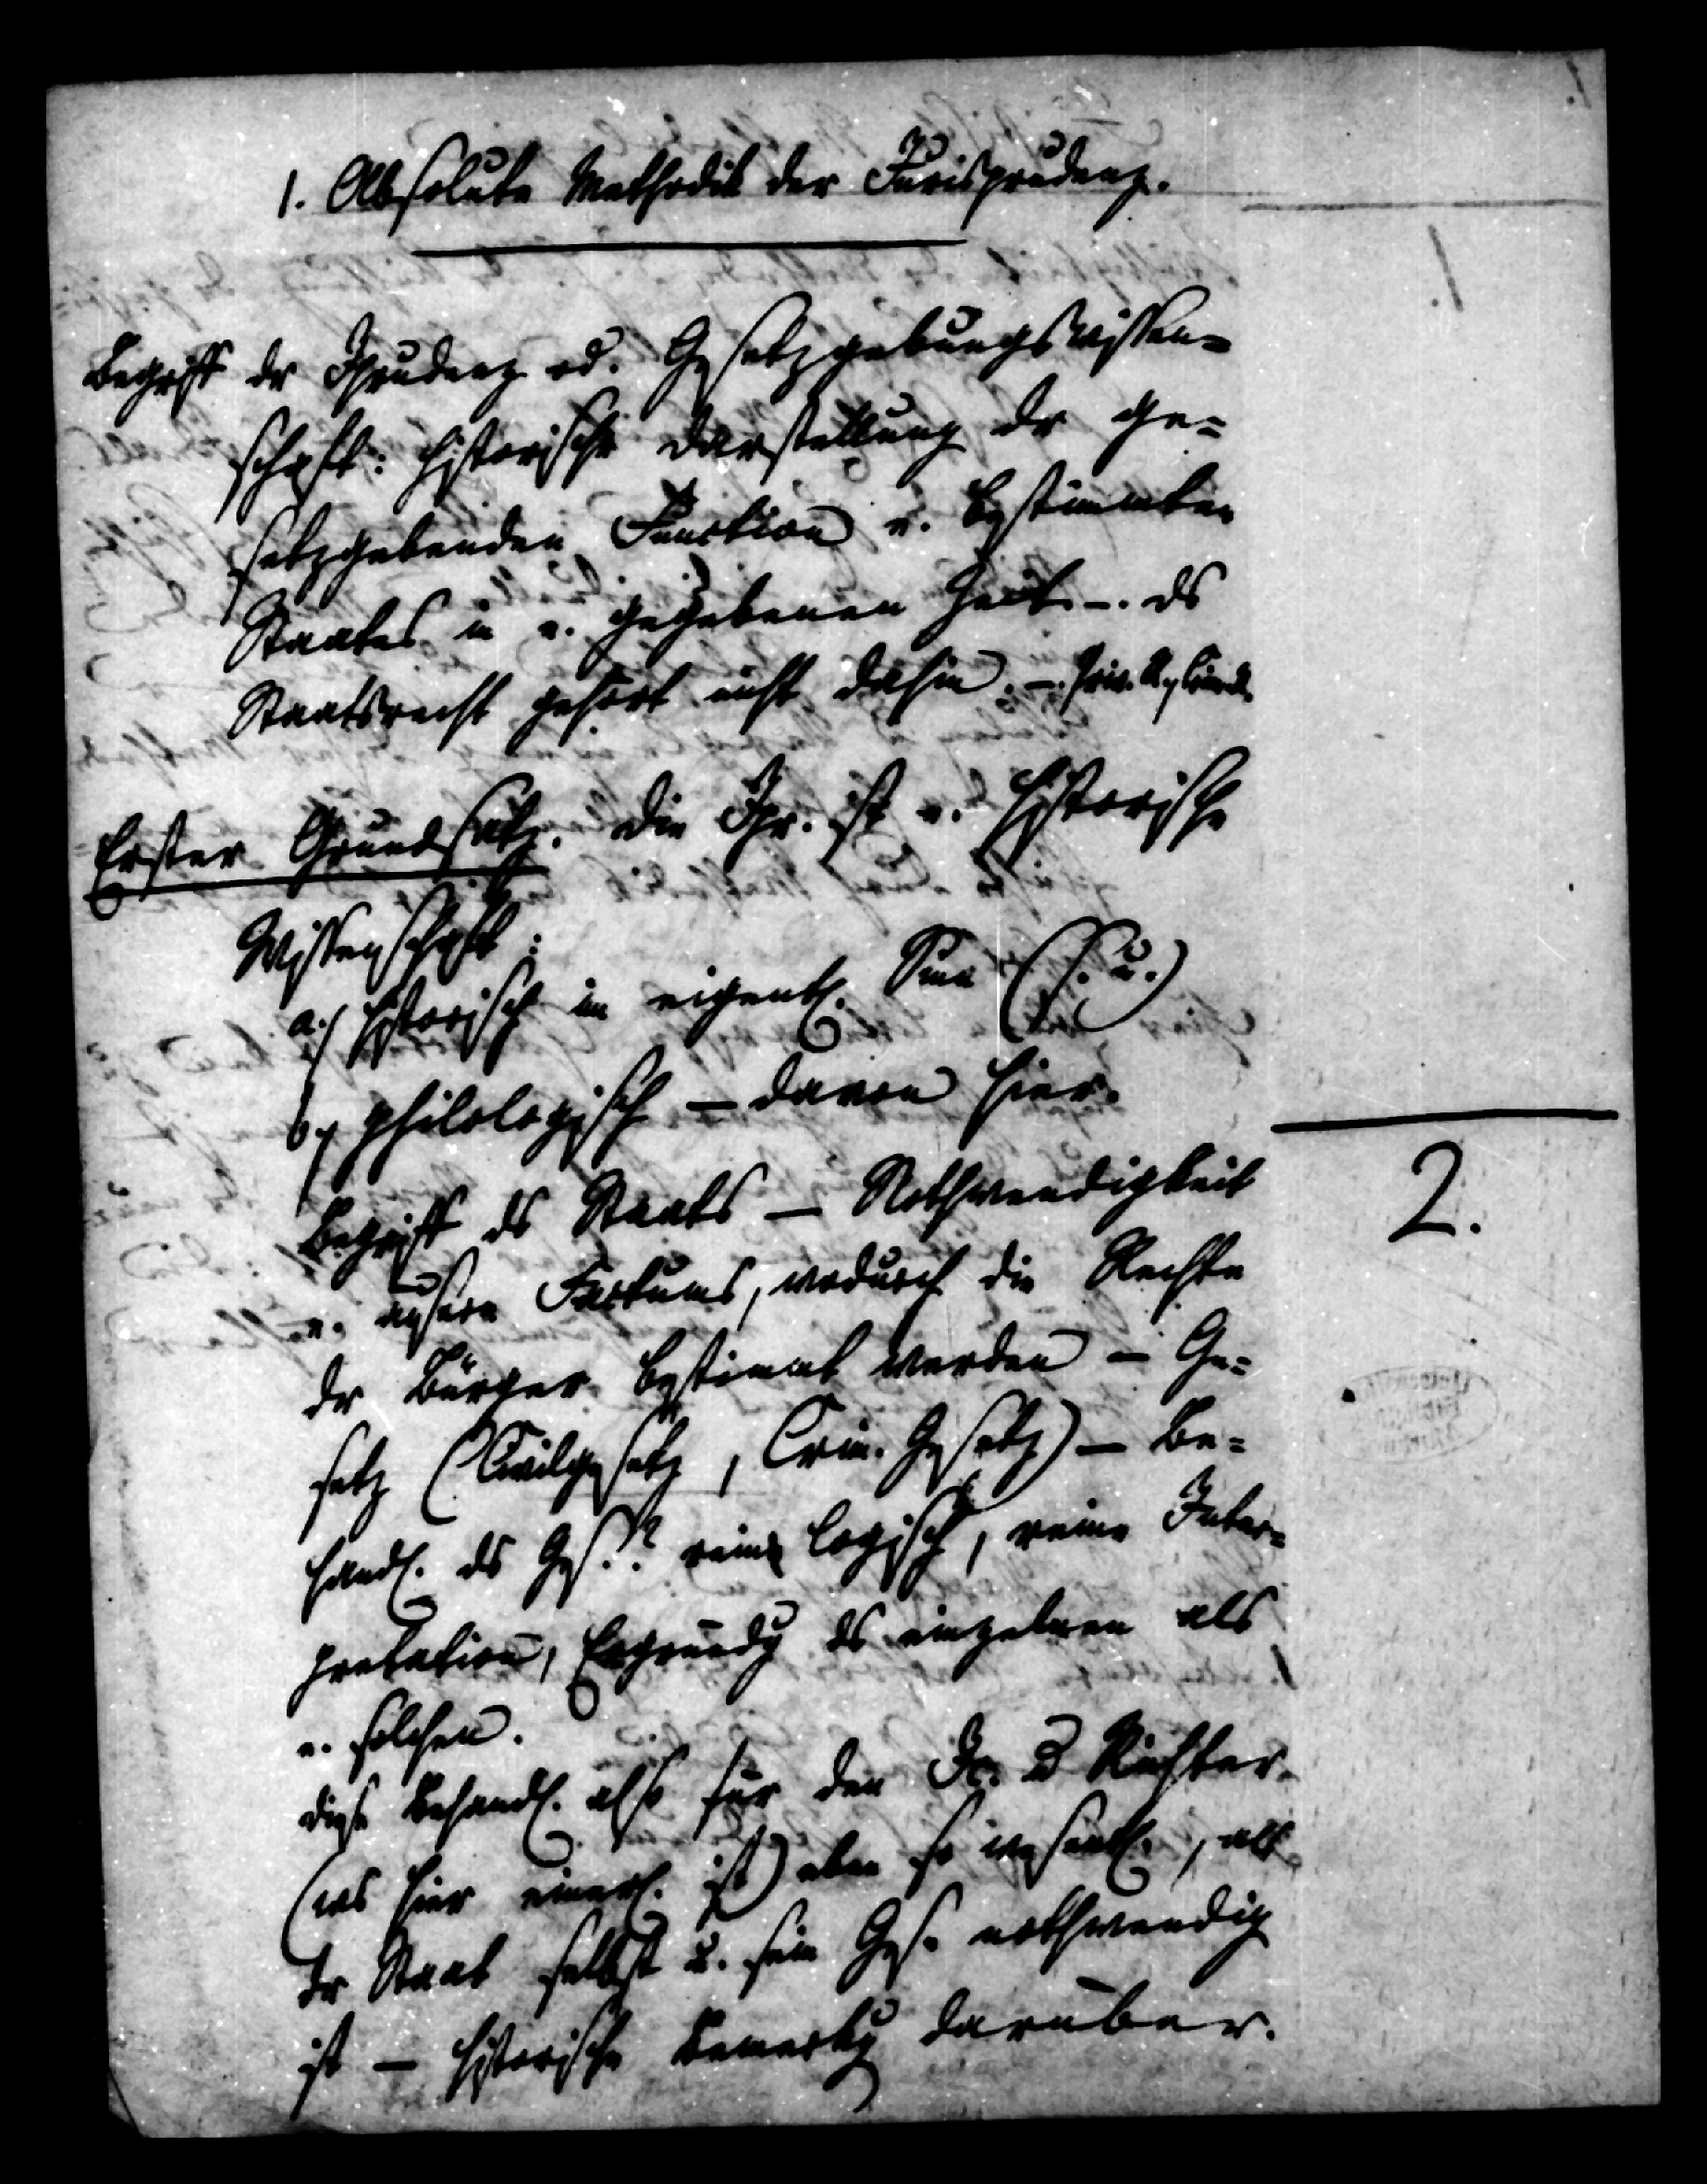 1. Absolute Methodik der Jurisprudenz.
1.
Begriff dr Jprudenz od. Gesetzgebungswissen=
schaft: historische Darstellung dr ge=
setzgebenden Function e. bestimmten
Staates in e. gegebenen Zeit. –. ds
Staatsrecht gehört nicht dahin. –. Priv. R., Crim.
Erster Grundsatz. die Jpr. ist e. historische
Wissenschaft:
a.) historisch in eigentl. Sinn (s. u.)
b.) philologisch – davon hier.
2.
Begriff ds Staats – Nothwendigkeit
e. äußern Factums, wodurch die Rechte
dr Bürger bestimmt werden – Ge=
setz (Civilgesetz, Crim. Gesetz) – Be=
handl. ds Ges.? rein logisch, reine Inter=
pretation, Ergründg ds einzelnen als
e. solchen.
diese Behandl. also für den Jc. u Richter
(was hier einerl. ist) eben so wesentl., als
dr Staat selbst u. sein Ges. nothwendig
ist – historische Bemerkg darüber.